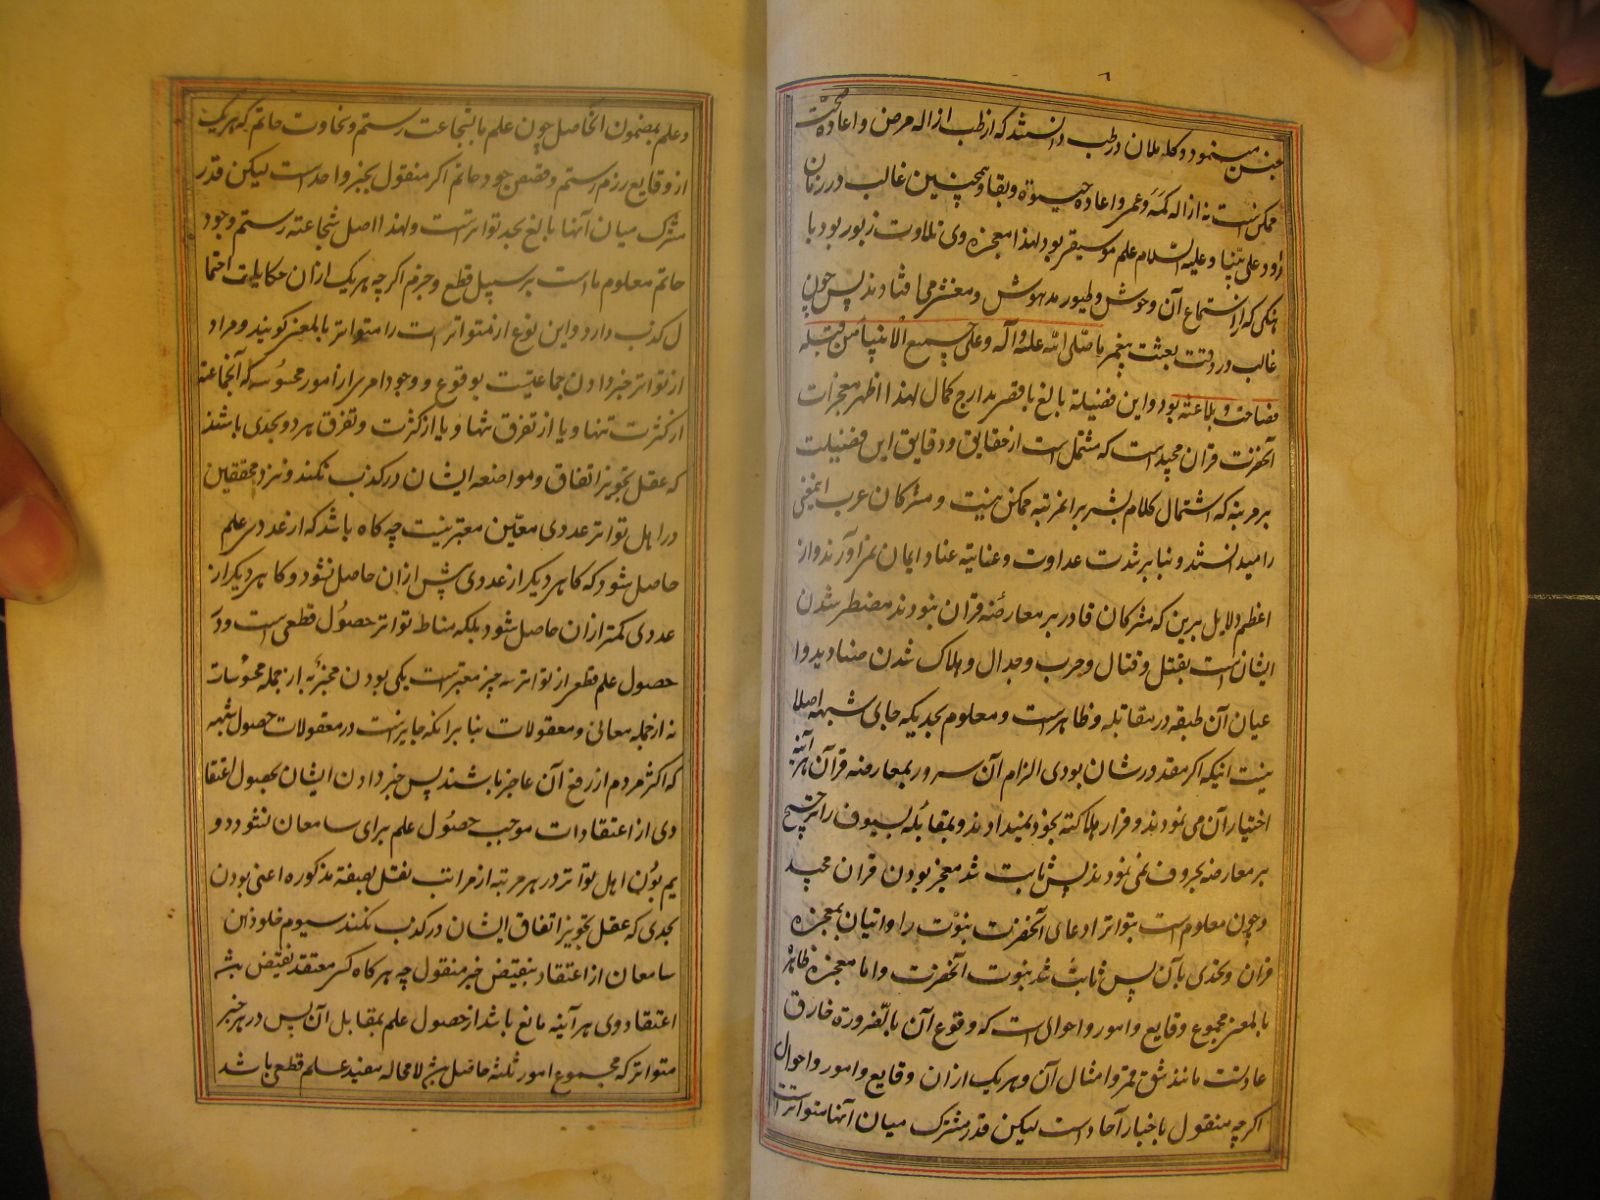 جنس مینمود و کاملان در طب دانستند که از طب ازاله مرض و اعاده صحت
ممکن است نه ازاله کمه و عمی و اعاده حیوة و بقا و همچنین غالب در زمان
داود علی نبینا و علیه السلام علم موسیقی بود لهذا معجزه وی تلاوت زبور بود با
هنگی که از استماع آن وحوش و طیور مدهوش و مغشی می افتادند پس چون
غالب در وقت بعثت پیغمبر ما صلی الله علیه و آله و علی جمیع الانبیا من قبله
فصاحت و بلاغته بود و این فضیلة بالغ باقصی مدارج کمال لهذا اظهر معجزات
آنحضرت قران مجید است که مشتمل است از حقایق و دقایق این فضیلت
بر مرتبه که اشتمال کلام بشر بر آنمرتبه ممکن نیست و مشرکان عرب اینمعنی
را میدانستند و بنا بر شدت عداوت و عنایته عناد ایمان نمی آورند و از
اعظم دلایل برین که مشرکان قادر بر معارضه قران نبودند مضطر شدن
ایشان است بقتل و قتال و حرب و جدال و هلاک شدن صنادید و ا
عیان آن طبقه در مقاتله و ظاهرست و معلوم بحدیکه جای شبهه اصلا
نیست اینکه اگر مقدور شان بودی الزام آن سرور بمعارضه قرآن هر آینه
اختیار آن می نمودند و قرار هلاکته بخود نمیدادند و بمقابله سیوف را ترجیح
بر معارضه بحروف نمی نمودند پس ثابت شد معجز بودن قران مجید
و چون معلوم است بتواتر ادعای آنحضرت نبوت را و اتیان بمعجزه
قران و تحدی بآن پس ثابت شد نبوت آنحضرت و اما معجزه ظاهره
بالمعنی مجموع وقایع و امور و احوال است که وقوع آن بالضرورة خارق
عادتست مانند شق قمر و امثال آن و هر یک از ان وقایع و امور و احوال
اگرچه منقول باخبار آحاد است لیکن قدر مشترک میان آنها متواترست
و علم بمضمون انحاصل چون علم ما بشجاعت رستم و سخاوت حاتم که هر یک
از وقایع رزم رستم و قصص جود حاتم اگر منقول بخبر واحد است لیکن قدر
مشترک میان آنها بالغ بحد تواترست و لهذا اصل شجاعته رستم و جود
حاتم معلوم ما است بر سبیل قطع و جزم اگرچه هر یک از ان حکایات احتما
ل کذب دارد و این نوع از متواتر است را متواتر بالمعنی گویند و مراد
از تواتر خبر دادن جماعتیست بوقوع و وجود امری از امور محسوسه که آنجماعته
از کثرت تنها و یا از تفرق تنها و یا از کثرت و تفرق هر دو بحدی باشند
که عقل تجویز اتفاق و مواضعه ایشان در کذب نکند و نزد محققین
در اهل تواتر عددی معین معتبر نیست چه گاه باشد که از عددی علم
حاصل شود که گاهی دیگر از عددی بیش از ان حاصل نشود و گاهی دیگر از
عددی کمتر از ان حاصل شود بلکه مناط تواتر حصول قطعی است و در
حصول علم قطعی از تواتر سه چیز معتبرست یکی بودن مخبر به از جمله محسوسات
نه از جمله معانی و معقولات بنا برآنکه جایزست در معقولات حصول شبهه
که اکثر مردم از رفع آن عاجز باشند پس خبر دادن ایشان بحصول اعتقا
دی از اعتقادات موجب حصول علم برای سامعان نشود دو
یم بودن اهل تواتر در هر مرتبه از مراتب نقل بصفته مذکوره اعنی بودن
بحدی که عقل تجویز اتفاق ایشان در کذب نکند سیوم خلو ذهن
سامعان از اعتقاد بنقیض خبر منقول چه هر گاه کسی معتقد نقیض باشد
اعتقاد وی هر آینه مانع باشد از حصول علم بمقابل آن پس در هر خبر
متواتر که مجموع امور ثلثه حاصل باشد لا محاله مفید علم قطعی باشد